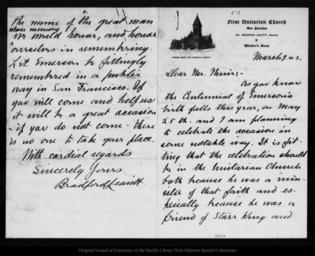 First Unitarian Church
San Francisco
March 9, 03.
Dear Mr. Muir:-
As you know
the Centennial of Emerson's
birth falls this year, on May
25th. and I am planning
to celebrate the occasion in
some notable way. It is fit-
ting that the celebration should
be in the Unitarian Church
both because he was a min-
ister of that faith and es-
pecially because he was a
friend of Starr King and
the name of the great man
whose memory
we would honor, and honor
ourselves in remembering.
Let Emerson be fittingly
remembered in a public
way in San Francisco. If
you will come and help us
it will be a great occasion
- if you do not come - there
is no one to take your place.
With cordial regards
Sincerely yours
Bradford Leavitt
Original located at University of the Pacific Library Holt-Atherton Special Collections